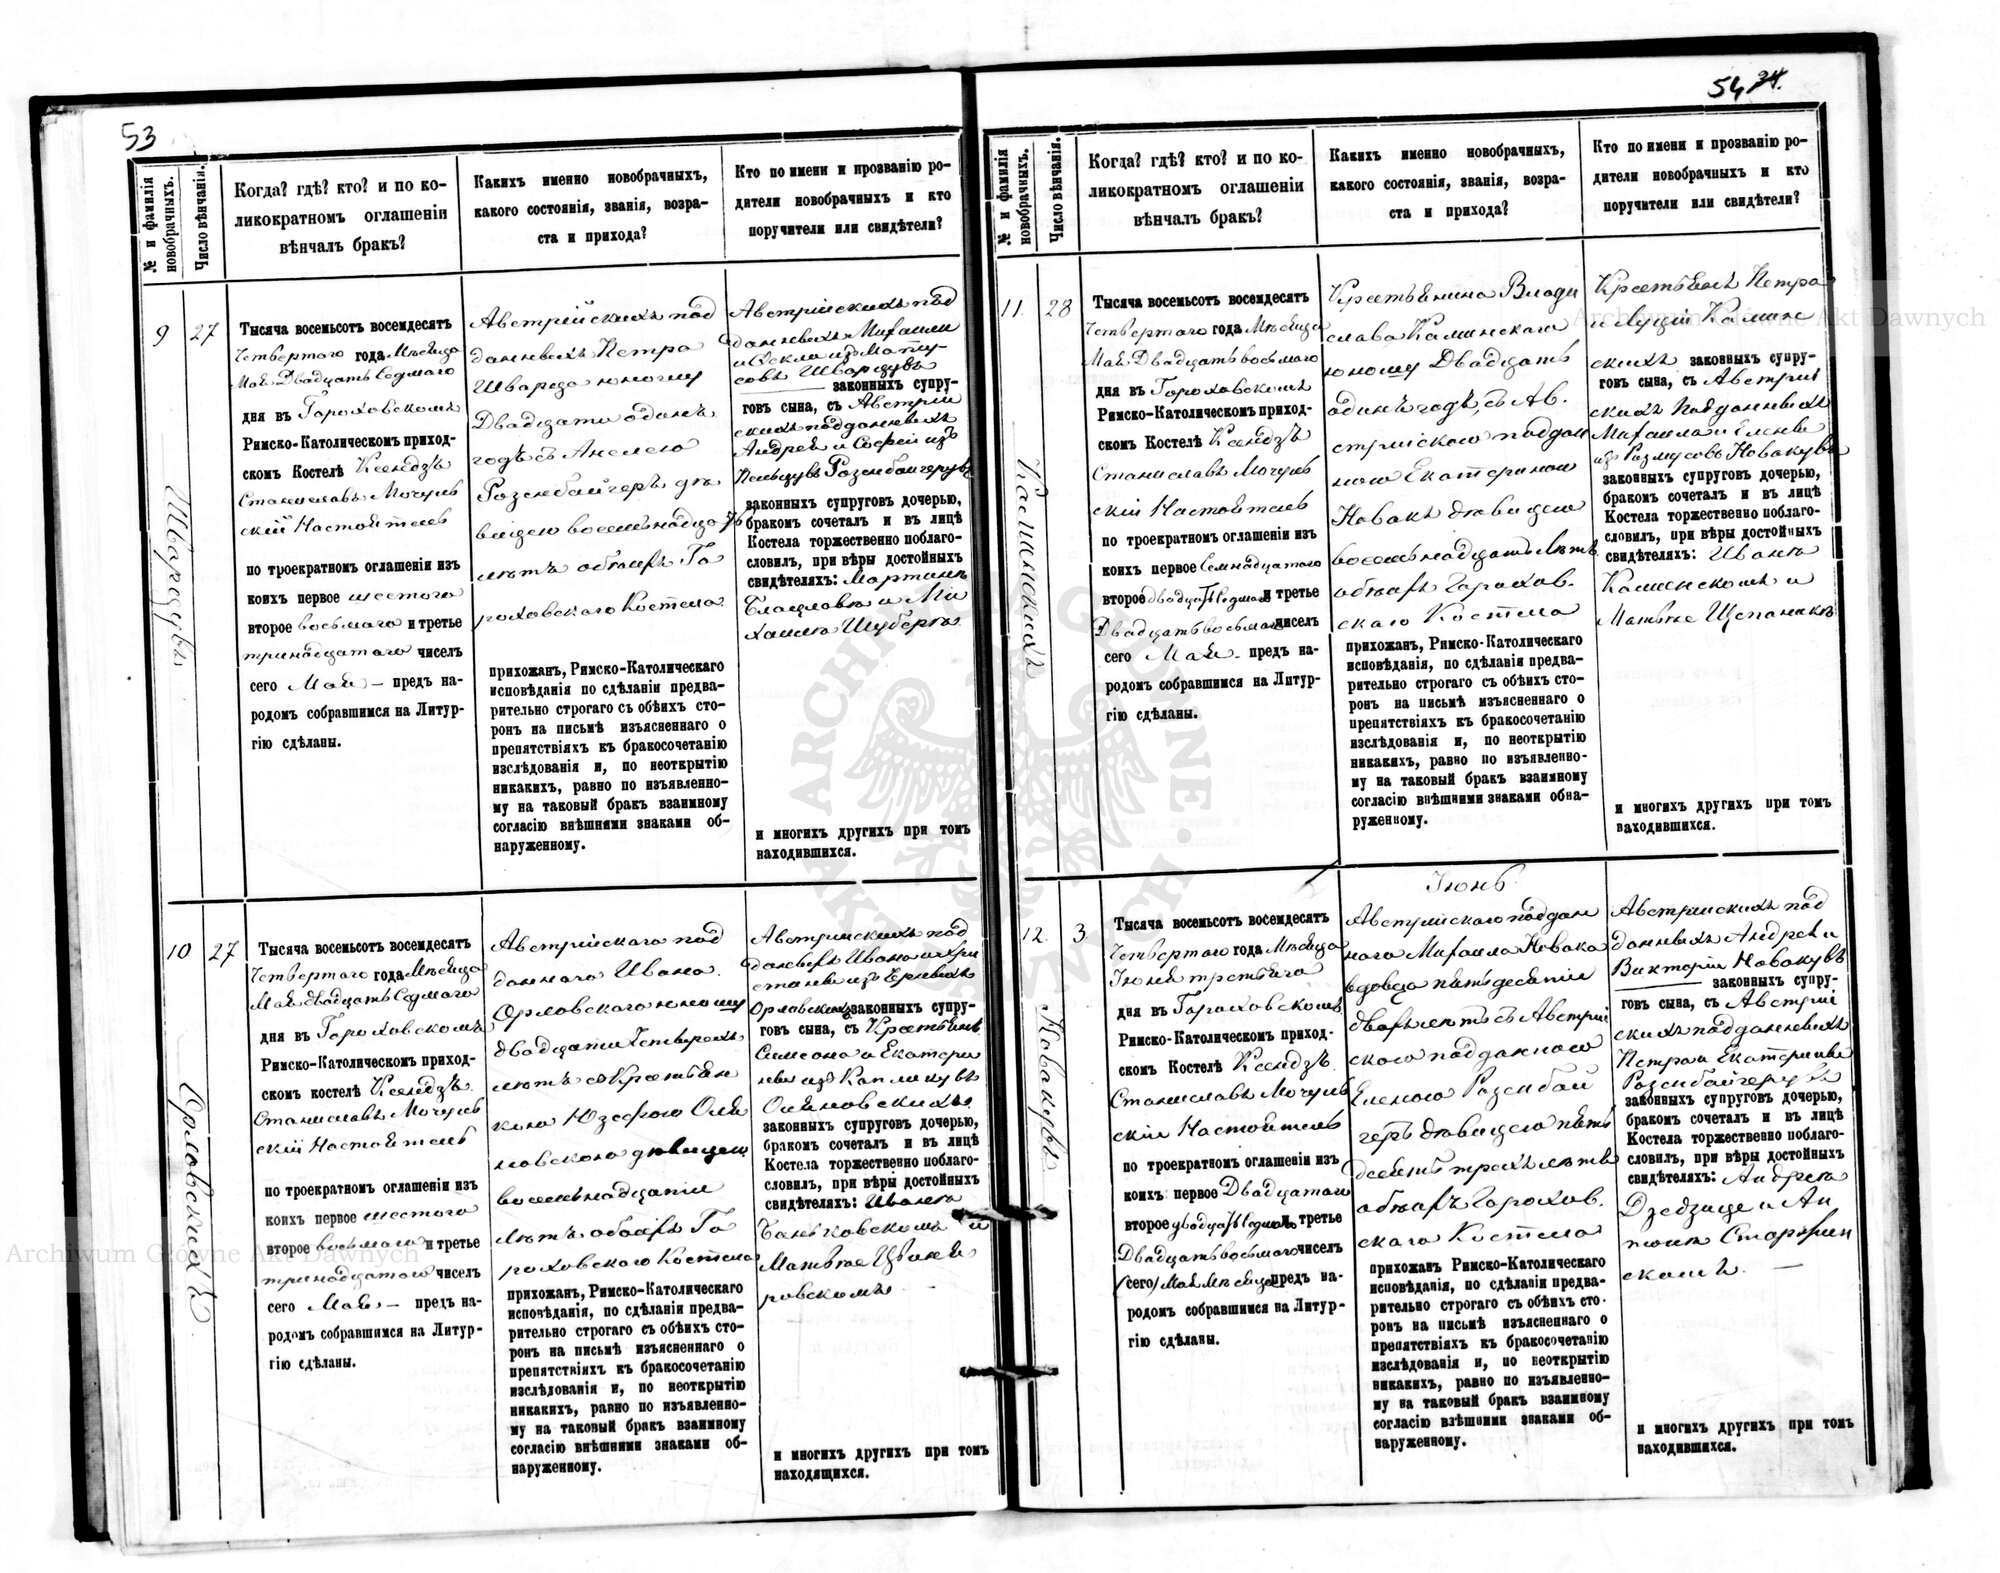 53
№ и фамилія новобрачныхъ.
Число вѣнчанія.
Когда? гдѣ? кто? и по ко-
ликократномъ оглашеніи
вѣнчалъ бракъ?
Какихъ именно новобрачныхъ,
какого состоянія, званія, возра-
ста и прихода?
Кто по имени и прозванію ро-
дители новобрачныхъ и кто
поручители или свидѣтели?
9
Шварцувъ
27
Тысяча восемьсотъ восемдесятъ
Четвертого года Мѣсяца
Мая Двадцать Седмаго
дня въ Гороховскомъ
Римско-Католическомъ приход-
скомъ Костелѣ Ксендзъ
Станиславъ Мочуль
скій Настоятель
по троекратномъ оглашеніи изъ
коихъ первое шестого
второе восьмаго и третье
тринадцатаго чиселъ
сего Мая — предъ на-
родомъ собравшимся на Литур-
гію сдѣланы.
Австрійскихъ под
данныхъ Петра
Шварца юношу
Двадцати одинъ
годъ съ Анелею
Розенбайгеръ дѣ
вицею восемнадца
лѣтъ обоихъ Го
роховскаго Костела
прихожан, Римско-Католическаго
исповѣданія по сдѣланіи предва-
рительно строгаго съ обѣихъ сто-
ронъ на письмѣ изъясненнаго о
препятствіяхъ къ бракосочетанію
изслѣдованія и, по неоткрытію
никакихъ, равно по изъявленно-
му на таковый бракъ взаимному
согласію внѣшними знаками об-
наруженному.
Австрійскихъ под
данныхъ Михаила
и Теклы изъ Мату-
совъ Шварцувъ
законныхъ супру-
говъ сына, съ Австрій
скихъ подданныхъ
Андрея и Софіи изъ
Розенбайгерувъ
законныхъ супруговъ дочерью,
бракомъ сочеталъ и въ лицѣ
Костела торжественно поблаго-
словилъ, при вѣры достойныхъ
свидѣтеляхъ: Мартинѣ
и Ми
хаилѣ Шубертѣ
и многихъ другихъ при томъ
находившихся.
10
Орловскихъ
27
Тысяча восемьсотъ восемдесятъ
Четвертого года Мѣсяца
Мая двадцать Седмаго
дня въ Гороховскомъ
Римско-Католическомъ приход-
скомъ костелѣ Ксендзъ
Станиславъ Мочуль
скій Настоятель
по троекратномъ оглашеніи изъ
коихъ первое шестого
второе восьмаго и третье
тринадцатаго чиселъ
сего Мая — предъ на-
родомъ собравшимся на Литур-
гію сдѣланы.
Австрійскаго под
даннаго Ивана
Орловскаго юношу
двадцати Четырехъ
лѣтъ съ Крестьян
кою Юзефою Оля
новскою дѣвицею
восемьнадцати
лѣтъ обоихъ Го
роховскаго Костела
прихожан, Римско-Католическаго
исповѣданія, по сдѣланіи предва-
рительно строгаго съ обѣихъ сто-
ронъ на письмѣ изъясненнаго о
препятствіяхъ къ бракосочетанію
изслѣдованія и, по неоткрытію
никакихъ, равно по изъявленно-
му на таковый бракъ взаимному
согласію внѣшними знаками об-
наруженному.
Австрійскихъ под
данныхъ Ивана и Хри
стины изъ
Орловскихъ законныхъ супру-
говъ сына, съ Крестьянъ
Симеона и Екатери
ны изъ Каплицувъ
Оляновскихъ
законныхъ супруговъ дочерью,
бракомъ сочеталъ и въ лицѣ
Костела торжественно поблаго-
словилъ, при вѣры достойныхъ
свидѣтеляхъ: Иванѣ
Баньковскомъ и
Матвѣѣ
и многихъ другихъ при томъ
находящихся.
54 34.
№ и фамилія новобрачныхъ.
Число вѣнчанія.
Когда? гдѣ? кто? и по ко-
ликократномъ оглашеніи
вѣнчалъ бракъ?
Какихъ именно новобрачныхъ,
какого состоянія, званія, возра-
ста и прихода?
Кто по имени и прозванію ро-
дители новобрачныхъ и кто
поручители или свидѣтели?
11.
Калинскихъ
28
Тысяча восемьсотъ восемдесятъ
Четвертого года Мѣсяца
Мая Двадцать восьмого
дня въ Гороховскомъ
Римско-Католическомъ приход-
скомъ Костелѣ Ксендзъ
Станиславъ Мочуль
скій Настоятель
по троекратномъ оглашеніи изъ
коихъ первое Семнадцатого
второе двадцать Седмаго и третье
Двадцать восьмаго чиселъ
сего Мая — предъ на-
родомъ собравшимся на Литур-
гію сдѣланы.
Крестьянина Влади
слава Калинскаго
юношу Двадцать
одинъ годъ, съ Ав.
стрійскою поддан
ною Екатериною
Новакъ дѣвицею
восемьнадцать лѣтъ
обоихъ Горохов.
скаго Костела
прихожан, Римско-Католическаго
исповѣданія, по сдѣланіи предва-
рительно строгаго съ обѣихъ сто-
ронъ на письмѣ изъясненнаго о
препятствіяхъ къ бракосочетанію
изслѣдованія и, по неоткрытію
никакихъ, равно по изъявленно-
му на таковый бракъ взаимному
согласію внѣшними знаками обна-
руженному.
Крестьянъ Петра
и Луціи Калин
скихъ законныхъ супру-
говъ сына, съ Австрій
скихъ Подданныхъ
Михаила и Елены
изъ Розмусовъ Новакувъ
законныхъ супруговъ дочерью,
бракомъ сочеталъ и въ лицѣ
Костела торжественно поблаго-
словилъ, при вѣры достойныхъ
свидѣтеляхъ: Иванѣ
Калинскомъ и
Матвѣѣ Щепанякъ
и многихъ другихъ при томъ
находившихся.
12.
Новакувъ
3
Тысяча восемьсотъ восемдесятъ
Четвертого года Мѣсяца
Іюня третьяго
дня въ Гороховскомъ
Римско-Католическомъ приход-
скомъ Костелѣ Ксендзъ
Станиславъ Мочуль
скій Настоятель
по троекратномъ оглашеніи изъ
коихъ первое Двадцатаго
второе двадцать Седмаго и третье
Двадцать восьмаго чиселъ
(сего) Мая Мѣсяца предъ на-
родомъ собравшимся на Литур-
гію сдѣланы.
Іюнь.
Австрійскаго поддан
наго Михаила Новака
вдовца пятьдесяти
двохъ лѣтъ съ Австрій
скаго подданного
Еленою Розенбай
геръ дѣвицею пять
десять трехъ лѣтъ
обоихъ Горохов.
скаго Костела
прихожан, Римско-Католическаго
исповѣданія, по сдѣланіи предва-
рительно строгаго съ обѣихъ сто-
ронъ на письмѣ изъясненнаго о
препятствіяхъ къ бракосочетанію
изслѣдованія и, по неоткрытію
никакихъ, равно по изъявленно-
му на таковый бракъ взаимному
согласію внѣшними знаками об-
наруженному.
Австрійскихъ под
данныхъ Андрея и
Викторіи Новакувъ
законныхъ супру-
говъ сына, съ Австрій
скихъ подданныхъ
Петра и Екатерины
Розенбайгерувъ
законныхъ супруговъ дочерью,
бракомъ сочеталъ и въ лицѣ
Костела торжественно поблаго-
словилъ, при вѣры достойныхъ
свидѣтеляхъ: Андреѣ
Дзедзице и Ан
скомъ. —
и многихъ другихъ при томъ
находившихся.
Archiwum Główne Akt Dawnych
Archiwum Główne Akt Dawnych
ARCHIWUM GŁÓWNE AKT DAWNYCH